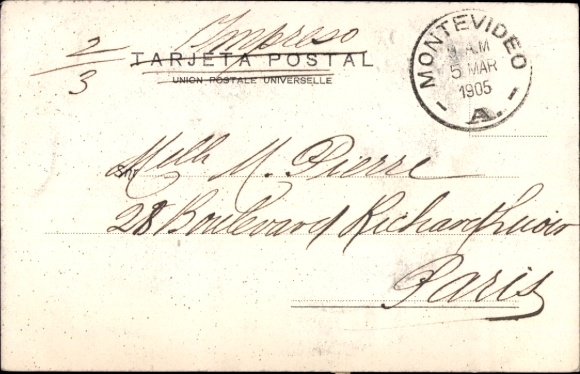 2/3
Impreso
TARJETA POSTAL
UNION POSTALE UNIVERSELLE
MONTEVIDEO
A.M
5 MAR
1905
A.
Melle M. Pierre
28 Boulevard Richard Lenoir
Paris